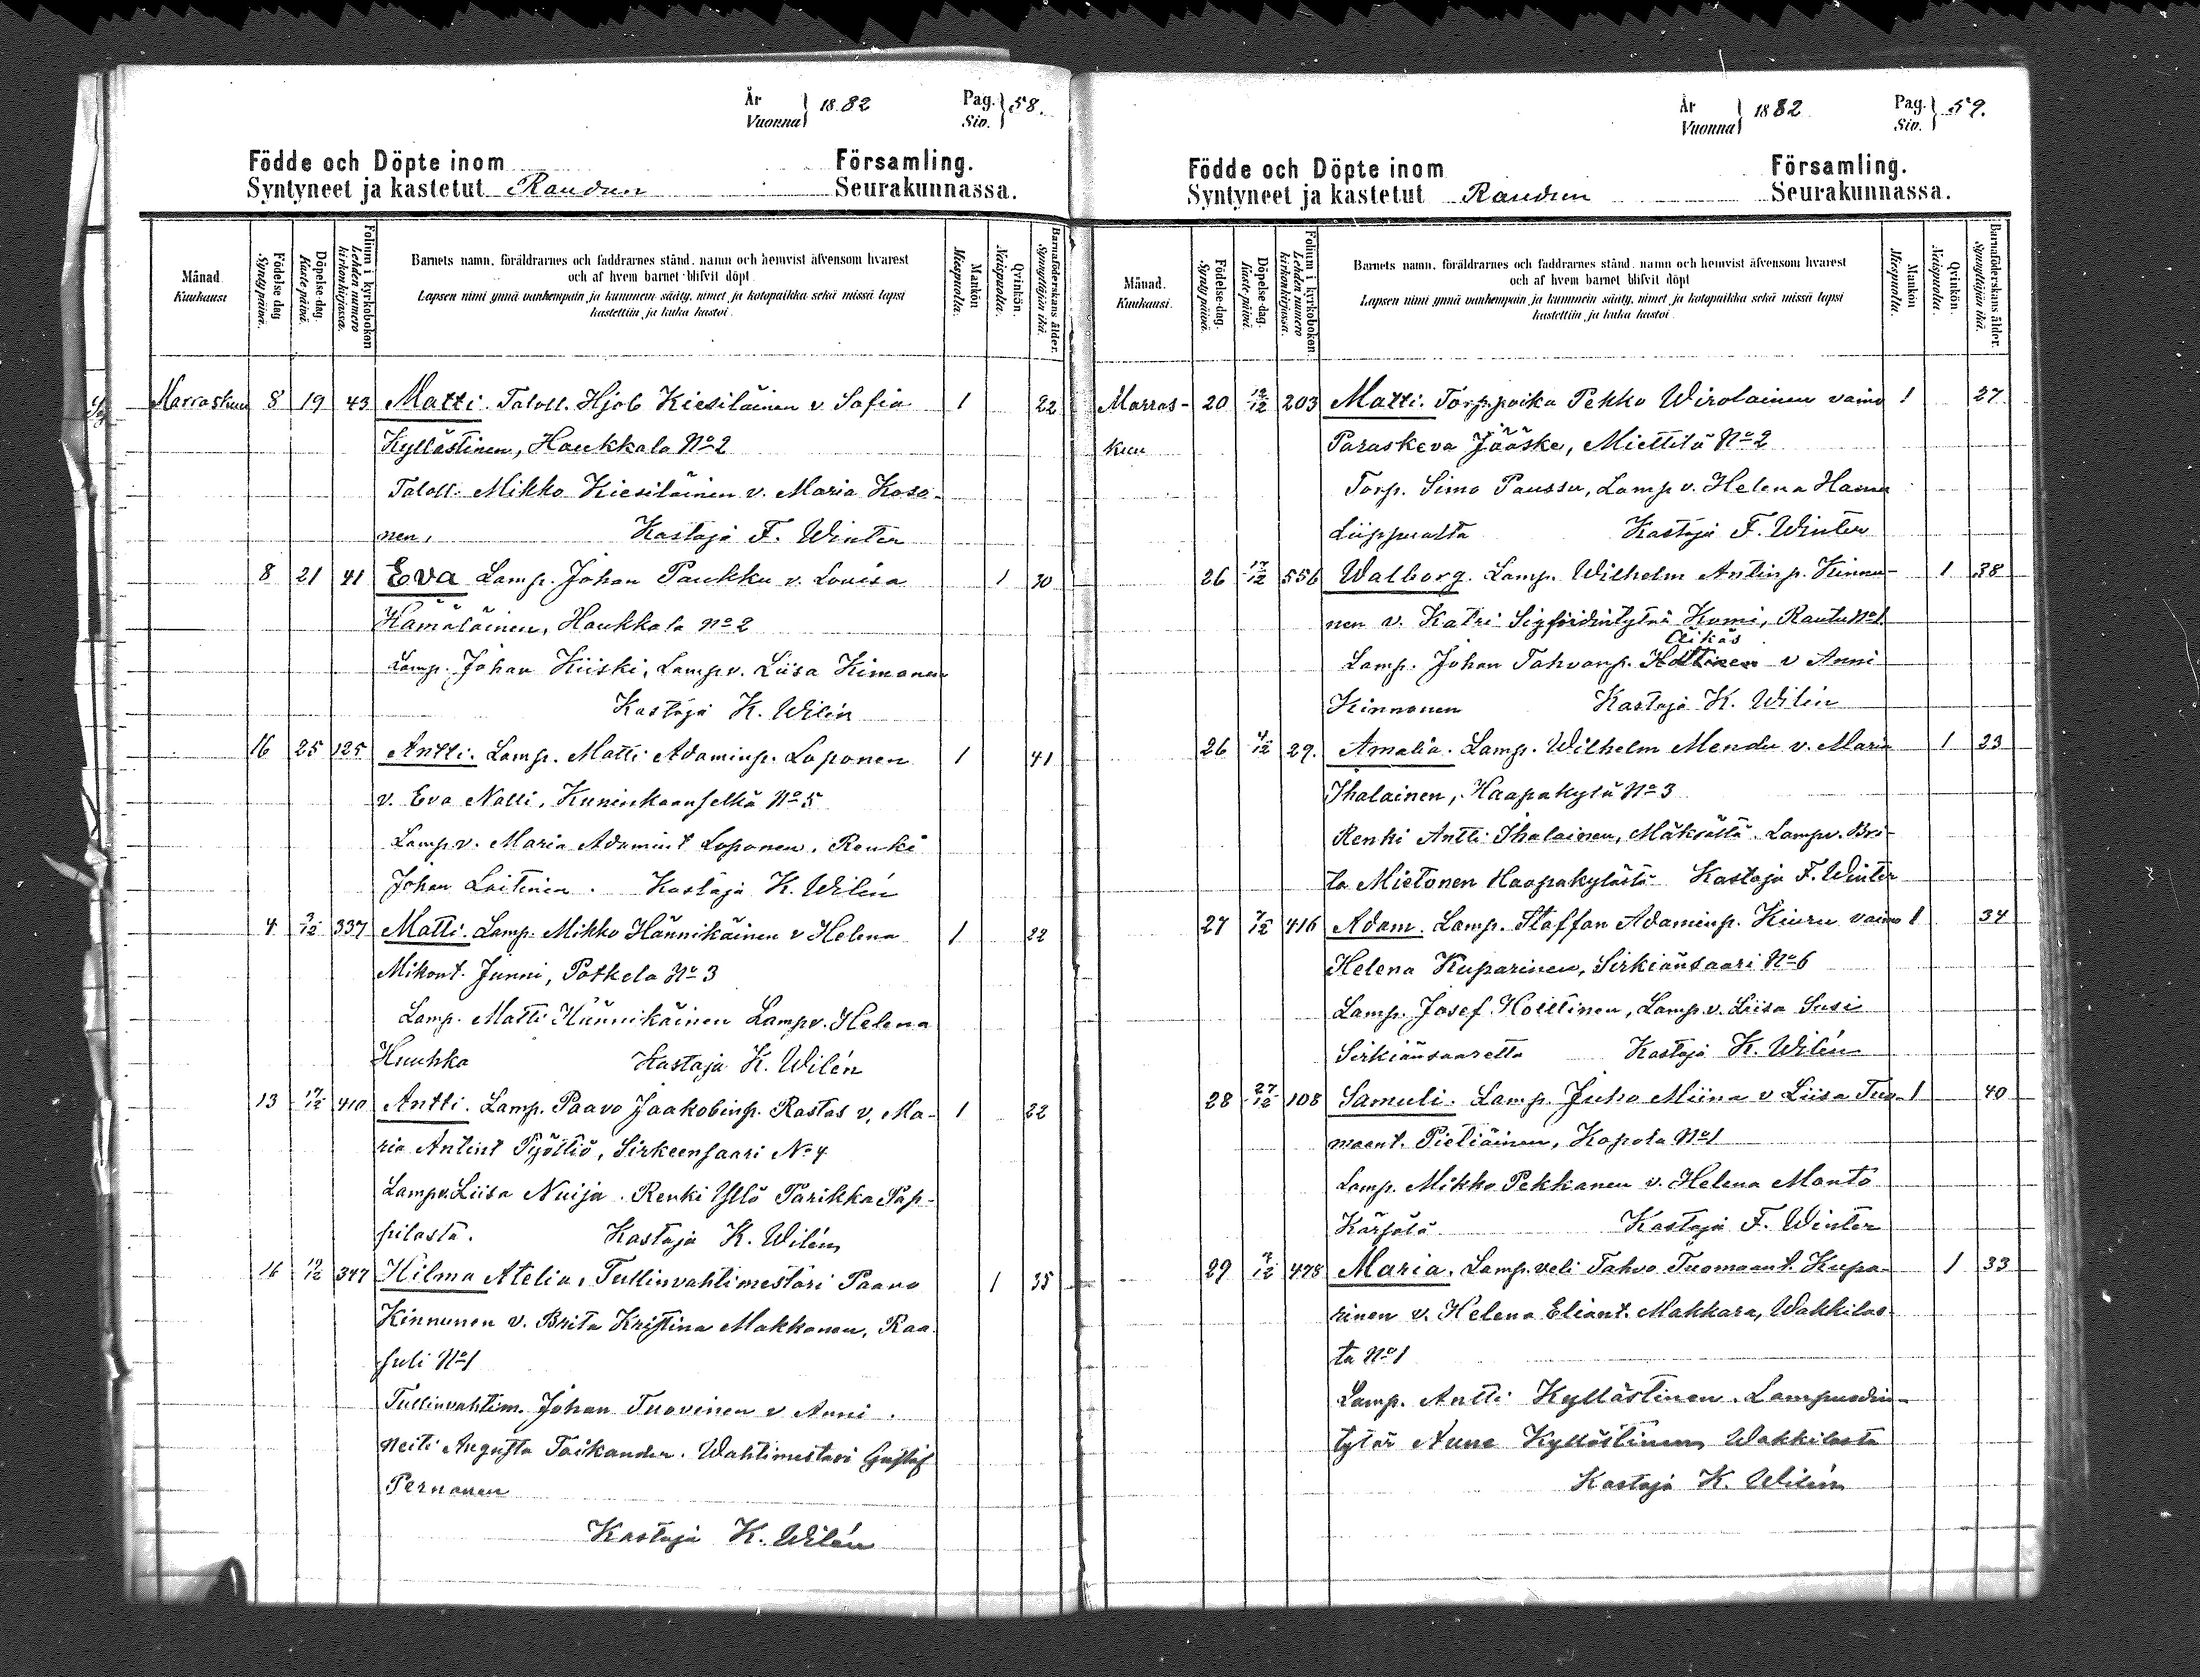 År Vuonna } 1882 Pag. Siv. } 58.
Födde och Döpte inom Församling.
Syntyneet ja kastetut Raudun Seurakunnassa.
Månad Kuukausi
Födelse-dag Syntypäivä.
Döpelse-dag. Kastepäivä.
Folium i kyrkoboken Lehden numero kirkonkirjassa.
Barnets namn, föräldrarnes och faddrarnes stånd, namn och hemvist äfvensom hvarest
och af hvem barnet blifvit döpt
Lapsen nimi ynnä vanhempain ja kummein sääty, nimet ja kotopaikka sekä missä lapsi
kastettiin ja kuka kastoi.
Mankön Miespuolta.
Qvinkön. Naispuolta.
Barnaföderskans ålder. Synnyttäjän ikä.
Marraskuu 8 19 43 Matti. Taloll. Hjob Kiesiläinen v Sofia 1 22
Kyllästinen, Haukkala No 2
Taloll. Mikko Kiesiläinen v. Maria Koso-
nen, Kastaja F. Winter
8 21 41 Eva Lamp. Johan Paukku v. Lovisa 1 30
Hämäläinen, Haukkala No 2
Lamp. Johan Kiiski, Lampv. Liisa Kimanen
Kastaja K. Wilén
16 25 125 Antti. Lamp. Matti Adaminp. Loponen 1 41
v. Eva Natti, Kuninkaanselkä No 5
Lampv. Maria Adamint Loponen, Renki
Johan Laitinen. Kastaja K. Wilén
4 3/12 337 Matti. Lamp. Mikko Hännikäinen v Helena 1 22
Mikont. Junni, Potkela No 3
Lamp. Matti Hännikäinen Lampv. Helena
Huuhka Kastaja K. Wilén
13 17/12 410 Antti. Lamp. Paavo Jaakobinp. Rastas v. Ma- 1 22
ria Antint Pyöttiö, Sirkeensaari No 4
Lampv. Liisa Nuija. Renki Yllö Parikka Pap-
pilasta. Kastaja K. Wilén
16 19/12 347 Hilma Atelia, Tullinvahtimestari Paavo 1 35
Kinnunen v. Brita Kristina Makkonen, Raa-
suli No 1
Tullinvahtim. Johan Tuovinen v Anni.
Neiti Augusta Taskander. Wahtimestari Gustaf
Pernonen
Kastaja K. Wilén
År Vuonna } 1882 Pag. Siv. } 59.
Födde och Döpte inom Församling.
Syntyneet ja kastetut Raudun Seurakunnassa.
Månad. Kuukausi.
Födelse-dag. Syntypäivä.
Döpelse-dag. Kastepäivä.
Folium i kyrkoboken Lehden numero kirkonkirjassa.
Barnets namn, föräldrarnes och faddrarnes stånd, namn och hemvist äfvensom hvarest
och af hvem barnet blifvit döpt
Lapsen nimi ynnä vanhempain ja kummein sääty, nimet ja kotopaikka sekä missä lapsi
kastettiin ja kuka kastoi.
Mankön Miespuolta.
Qvinkön. Naispuolta.
Barnaföderskans ålder. Synnyttäjän ikä.
Marras- 20 12/12 203 Matti. Torppoika Pekko Wirolainen vaimo 1 27
kuu Paraskeva Jääske, Miettilä No 2
Torp. Simo Paussu, Lamp v. Helena Hannu
Liippualta Kastaja F. Winter
26 17/12 556 Walborg. Lamp. Wilhelm Antinp. Kinnu- 1 38
nen v. Katri Sigfridintytär Humi, Rautu No 1.
Äikäs
Lamp. Johan Tahvanp. Hottinen v Anni
Kinnonen Kastaja K. Wilén
26 4/12 29. Amalia. Lamp. Wilhelm Mendu v. Maria 1 23
Ihalainen, Haapakylä No 3
Renki Antti Ihalainen, Mäkrästä. Lampv. Bri-
ta Mietonen Haapakylästä Kastaja F. Winter
27 7/12 416 Adam. Lamp. Staffan Adaminp. Kiuru vaimo 1 34
Helena Kuparinen, Sirkiänsaari No 6
Lamp. Josef Hottinen, Lamp.v. Liisa Susi
Sirkiänsaaretta Kastaja K. Wilén
28 27/12 108 Samuli. Lamp. Juho Miina v Liisa Tuo- 1 40
maant. Pietiäinen, Kapola No 1
Lamp. Mikko Pekkanen v. Helena Manto
Kärsälä Kastaja F. Winter
29 7/12 478 Maria. Lamp. veli Tahvo Tuomaant. Kupa- 1 33
rinen v. Helena Eliant. Makkara, Wakkilas-
ta No 1
Lamp. Antti Kyllästinen. Lampuodin-
tytär Anne Kyllästinen Wakkilasta
Kastaja K. Wilén